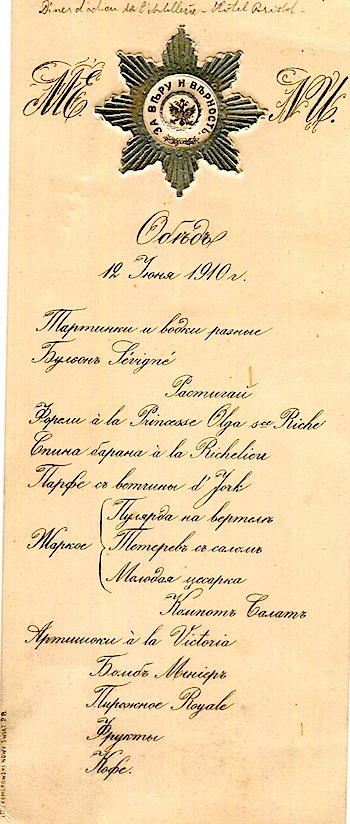 Diner d'adieu de l'Artillerie - Hôtel Bristol -
ЗА ВѢРУ И ВѢРНОСТЬ
Обѣдъ
12 Іюня 1910 г.
Тартинки и водки разные
Бульонъ Sévigné
Растигай
Форели à la Princesse Olga sce Riche
Спина барана à la Richelieu
Парфе съ ветчины d'York
Пулярда на вертелѣ
Жаркое Тетеревъ съ саломъ
Молодая цесарка
Компотъ Салатъ
Артишоки à la Victoria
Бомбъ Меніеръ
Пирожное Royale
Фрукты
Кофе.